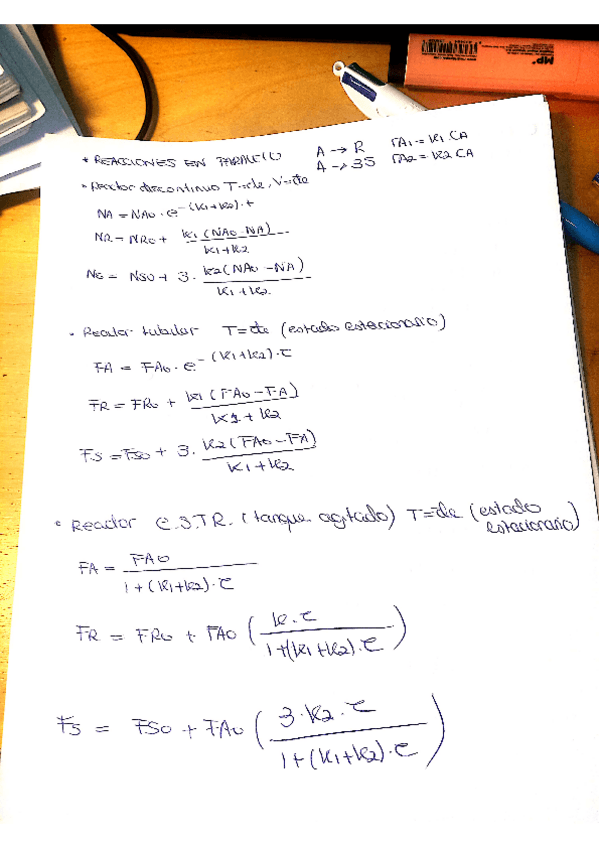 * REACCIONES EN PARALELO
A → R rA1 = K1 CA
A → 3S rA2 = K2 CA
• Reactor discontinuo T=cte, V=cte
NA = NAo · e^-(K1+K2)·t
NR = NRo + K1(NAo-NA) / K1+K2
NS = NSo + 3 · K2(NAo-NA) / K1+K2
• Reactor tubular T=cte (estado estacionario)
FA = FAo · e^-(K1+K2)·τ
FR = FRo + K1(FAo-FA) / K1+K2
FS = FSo + 3 · K2(FAo-FA) / K1+K2
• Reactor C.S.T.R. (tanque agitado) T=cte (estado
estacionario)
FA = FAo / 1+(K1+K2)·τ
FR = FRo + FAo (K·τ / 1+(K1+K2)·τ)
FS = FSo + FAo (3·K2·τ / 1+(K1+K2)·τ)
MP